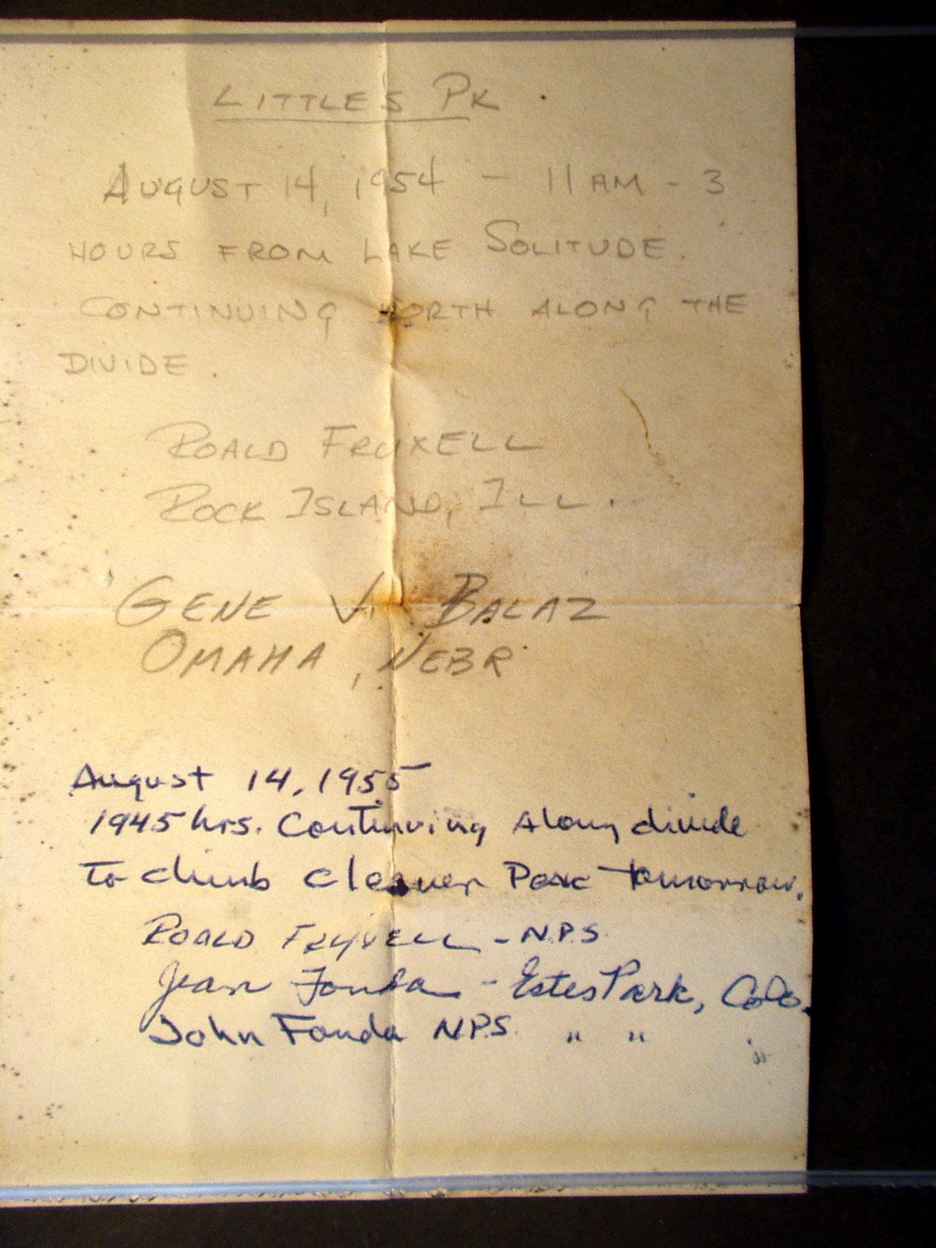 LITTLE'S PK.
AUGUST 14, 1954 - 11 AM - 3
HOURS FROM LAKE SOLITUDE.
CONTINUING NORTH ALONG THE
DIVIDE.
ROALD FRYXELL
ROCK ISLAND, ILL.
GENE V. BALAZ
OMAHA, NEBR
August 14, 1955
1945 hrs. Continuing Along divide
To climb Cleaver Peak tomorrow.
ROALD FRYXELL - NPS
Jean Fonda - Estes Park, Colo.
John Fonda NPS " " "